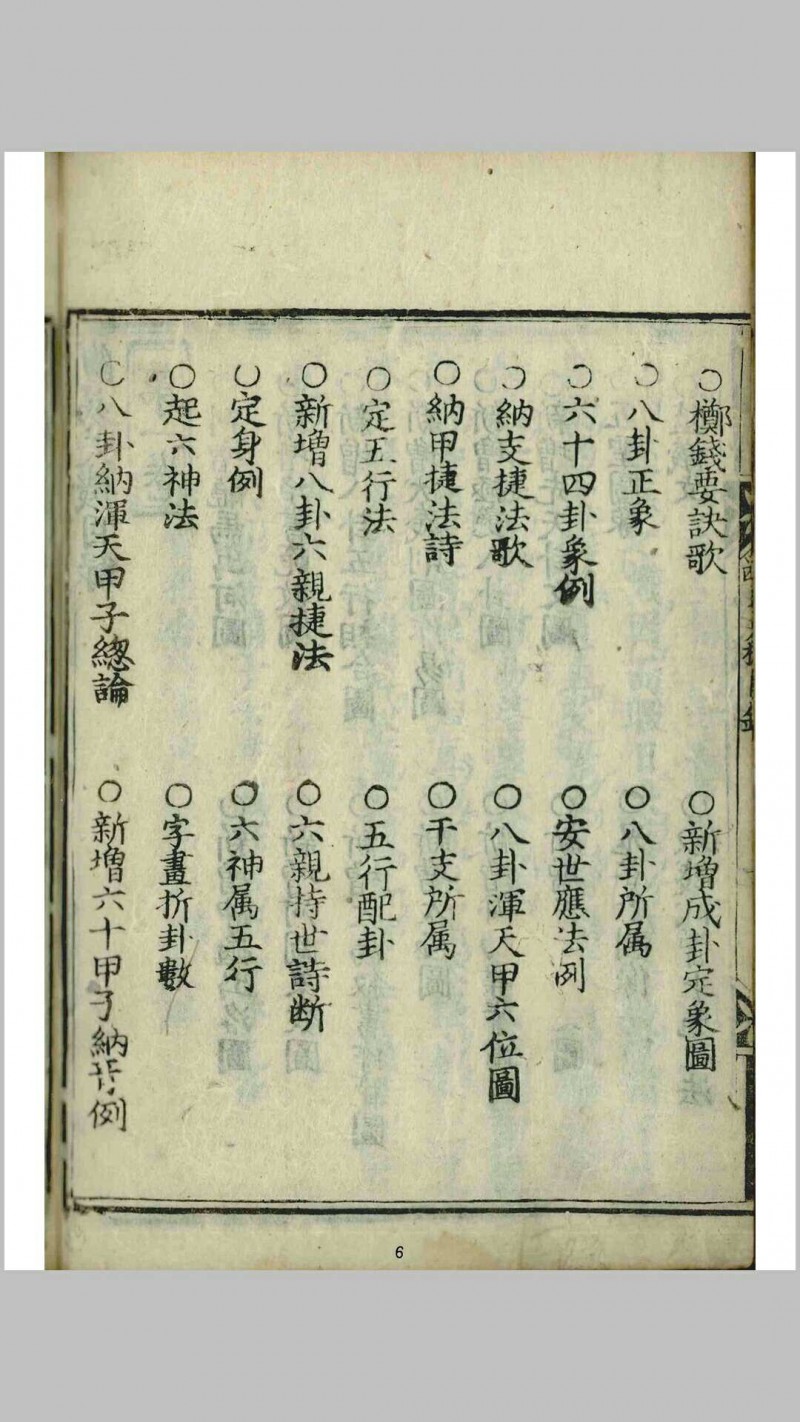 ○擲錢要訣歌
○新增成卦定象圖
○八卦正象
○八卦所属
○六十四卦象例
○安世應法例
○納支捷法歌
○八卦渾天甲六位圖
○納甲捷法詩
○干支所属
○定五行法
○五行配卦
○新增八卦六親捷法
○六親持世詩断
○定身例
○六神属五行
○起六神法
○字畫折卦數
○八卦納渾天甲子總論
○新增六十甲子納音例
6